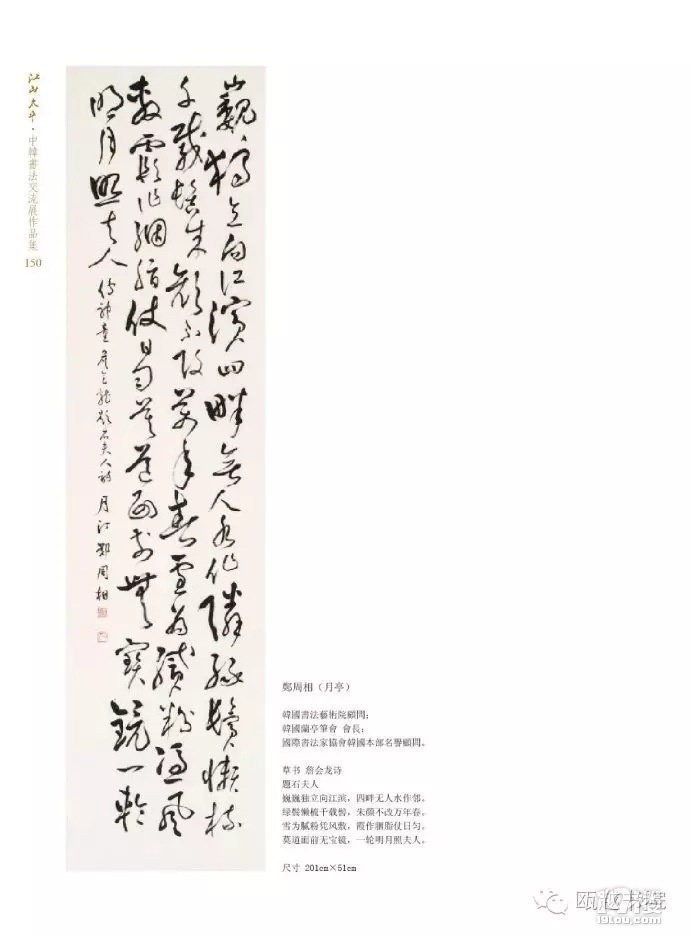 江山
中韓書法交流展作品集
150
巍巍獨立向江濱四畔無人水作隣綠鬢懶梳
千載髻朱顏不改萬年春雪為膩粉憑風
敷霞作胭脂仗日勻莫道面前無寶鏡一輪
明月照夫人
傳神童詹會龍題石夫人詩 月汀鄭周相
鄭周相（月亭）
韓國書法藝術院顧問；
韓國蘭亭筆會 會長；
國際書法家協會韓國本部名譽顧問。
草书 詹会龙诗
題石夫人
巍巍独立向江滨，四畔无人水作邻。
绿鬓懒梳千载髻，朱颜不改万年春。
雪为腻粉凭风敷，霞作胭脂仗日匀。
莫道面前无宝镜，一轮明月照夫人。
尺寸 201cm×51cm
瓯越书院
i9lou.com